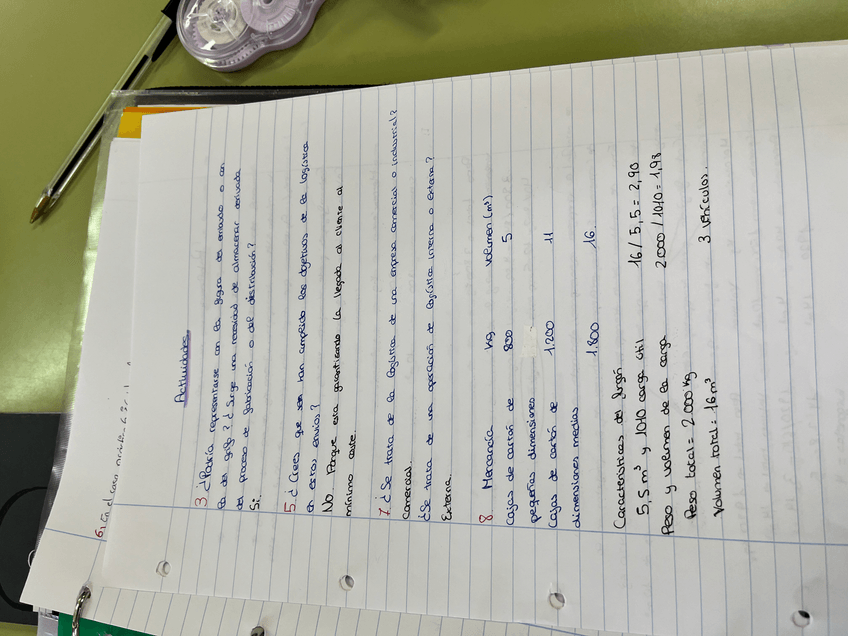 6. En el caso
Actividades
3 ¿Podría representarse con la figura de embudo o con
la de golf? ¿Surge una necesidad de almacenar derivada
del proceso de fabricación o del distribución?
Sí.
5 ¿Crees que se han cumplido los objetivos de la logística
en estos envíos?
No. Porque esta garantizando la llegada al cliente al
mínimo coste.
7. ¿Se trata de la logística de una empresa comercial o industrial?
comercial.
¿Se trata de una operación de logística interna o externa?
Externa.
8 Mercancía kg volumen (m³)
Cajas de cartón de 800 5
pequeñas dimensiones
Cajas de cartón de 1.200 11
dimensiones medias
1.800 16
Características del furgón
5,5 m³ y 1010 carga útil 16/5,5 = 2,90
Peso y volumen de la carga 2000/1010 = 1,98
Peso total = 2000 kg
Volumen total = 16 m³ 3 vehículos.